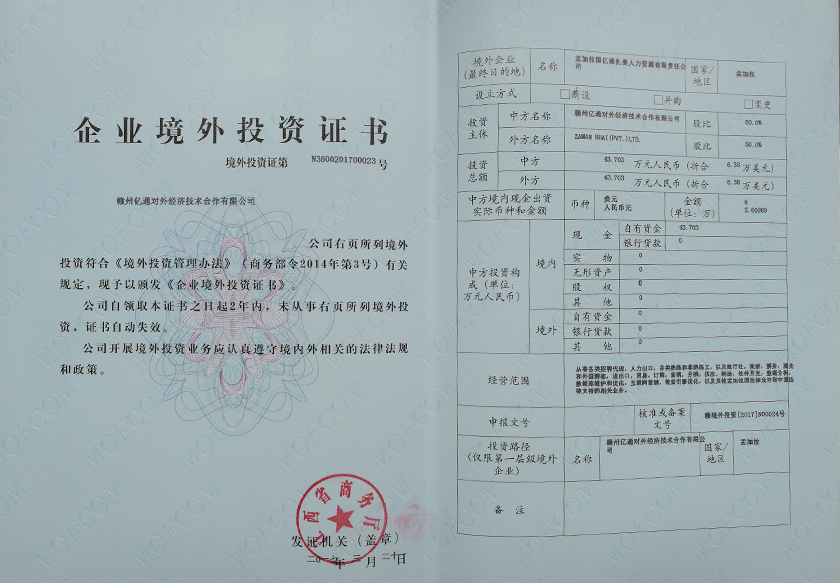 企业境外投资证书
境外投资证第 N3600201700023 号
赣州亿通对外经济技术合作有限公司
公司右页所列境外
投资符合《境外投资管理办法》（商务部令2014年第3号）有关
规定，现予以颁发《企业境外投资证书》。
公司自领取本证书之日起2年内，未从事右页所列境外投
资，证书自动失效。
公司开展境外投资业务应认真遵守境内外相关的法律法规
和政策。
江西省商务厅
发证机关（盖章）
年 月二十日
境外企业
(最终目的地)
名称
孟加拉国亿通扎曼人力资源有限责任公
司
国家/
地区
孟加拉
设立方式
□新设
□并购
□变更
投资
主体
中方名称
赣州亿通对外经济技术合作有限公司
股比
50.0%
外方名称
ZAMAN BHAI(PVT.)LTD.
股比
50.0%
投资
总额
中方
43.703 万元人民币（折合 6.38 万美元）
外方
43.703 万元人民币（折合 6.38 万美元）
中方境内现金出资
实际币种和金额
币种
美元
人民币元
金额
(单位：万)
6
2.60989
中方投资构
成（单位：
万元人民币）
境内
现 金
自有资金
43.703
银行贷款
0
实 物
0
无形资产
0
股 权
0
其 他
0
境外
自有资金
0
银行贷款
0
其 他
0
经营范围
申报文号
核准或备案
文号
赣境外投资[2017]N00024号
投资路径
（仅限第一层级境外
企业）
名称
赣州亿通对外经济技术合作有限公
司
国家/
地区
孟加拉
备 注